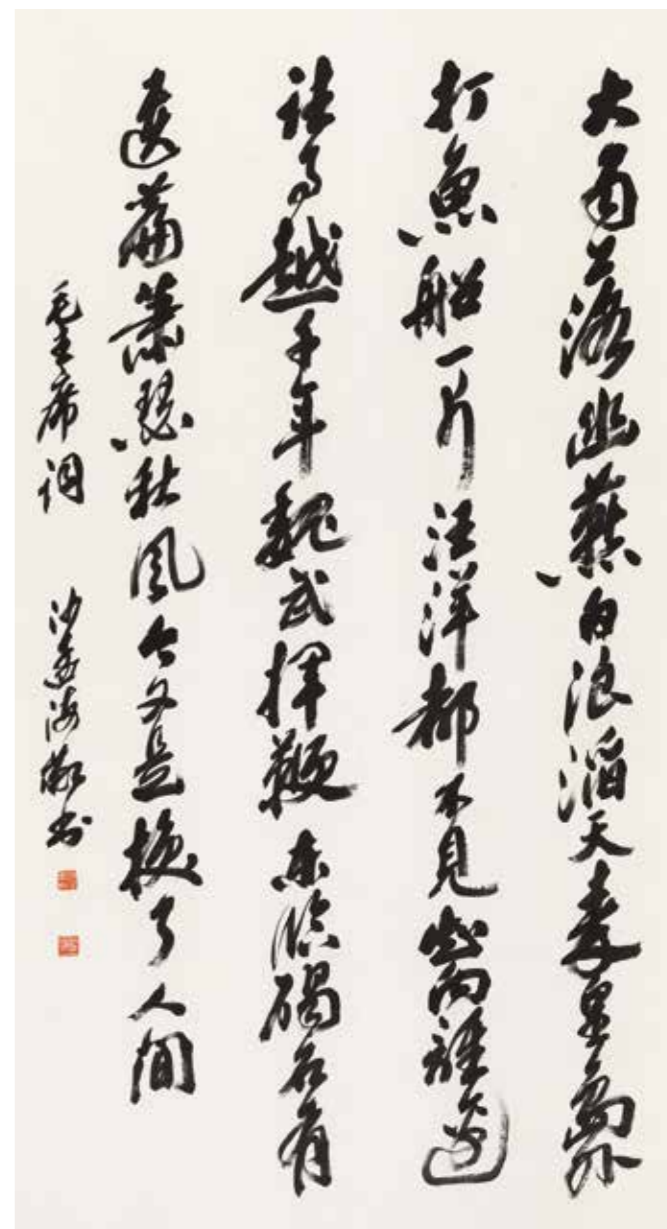 大雨落幽燕白浪滔天秦皇島外
打魚船一片汪洋都不見知向誰邊
往事越千年魏武揮鞭東臨碣石有
遺篇蕭瑟秋風今又是換了人間
毛主席詞 沙孟海敬書